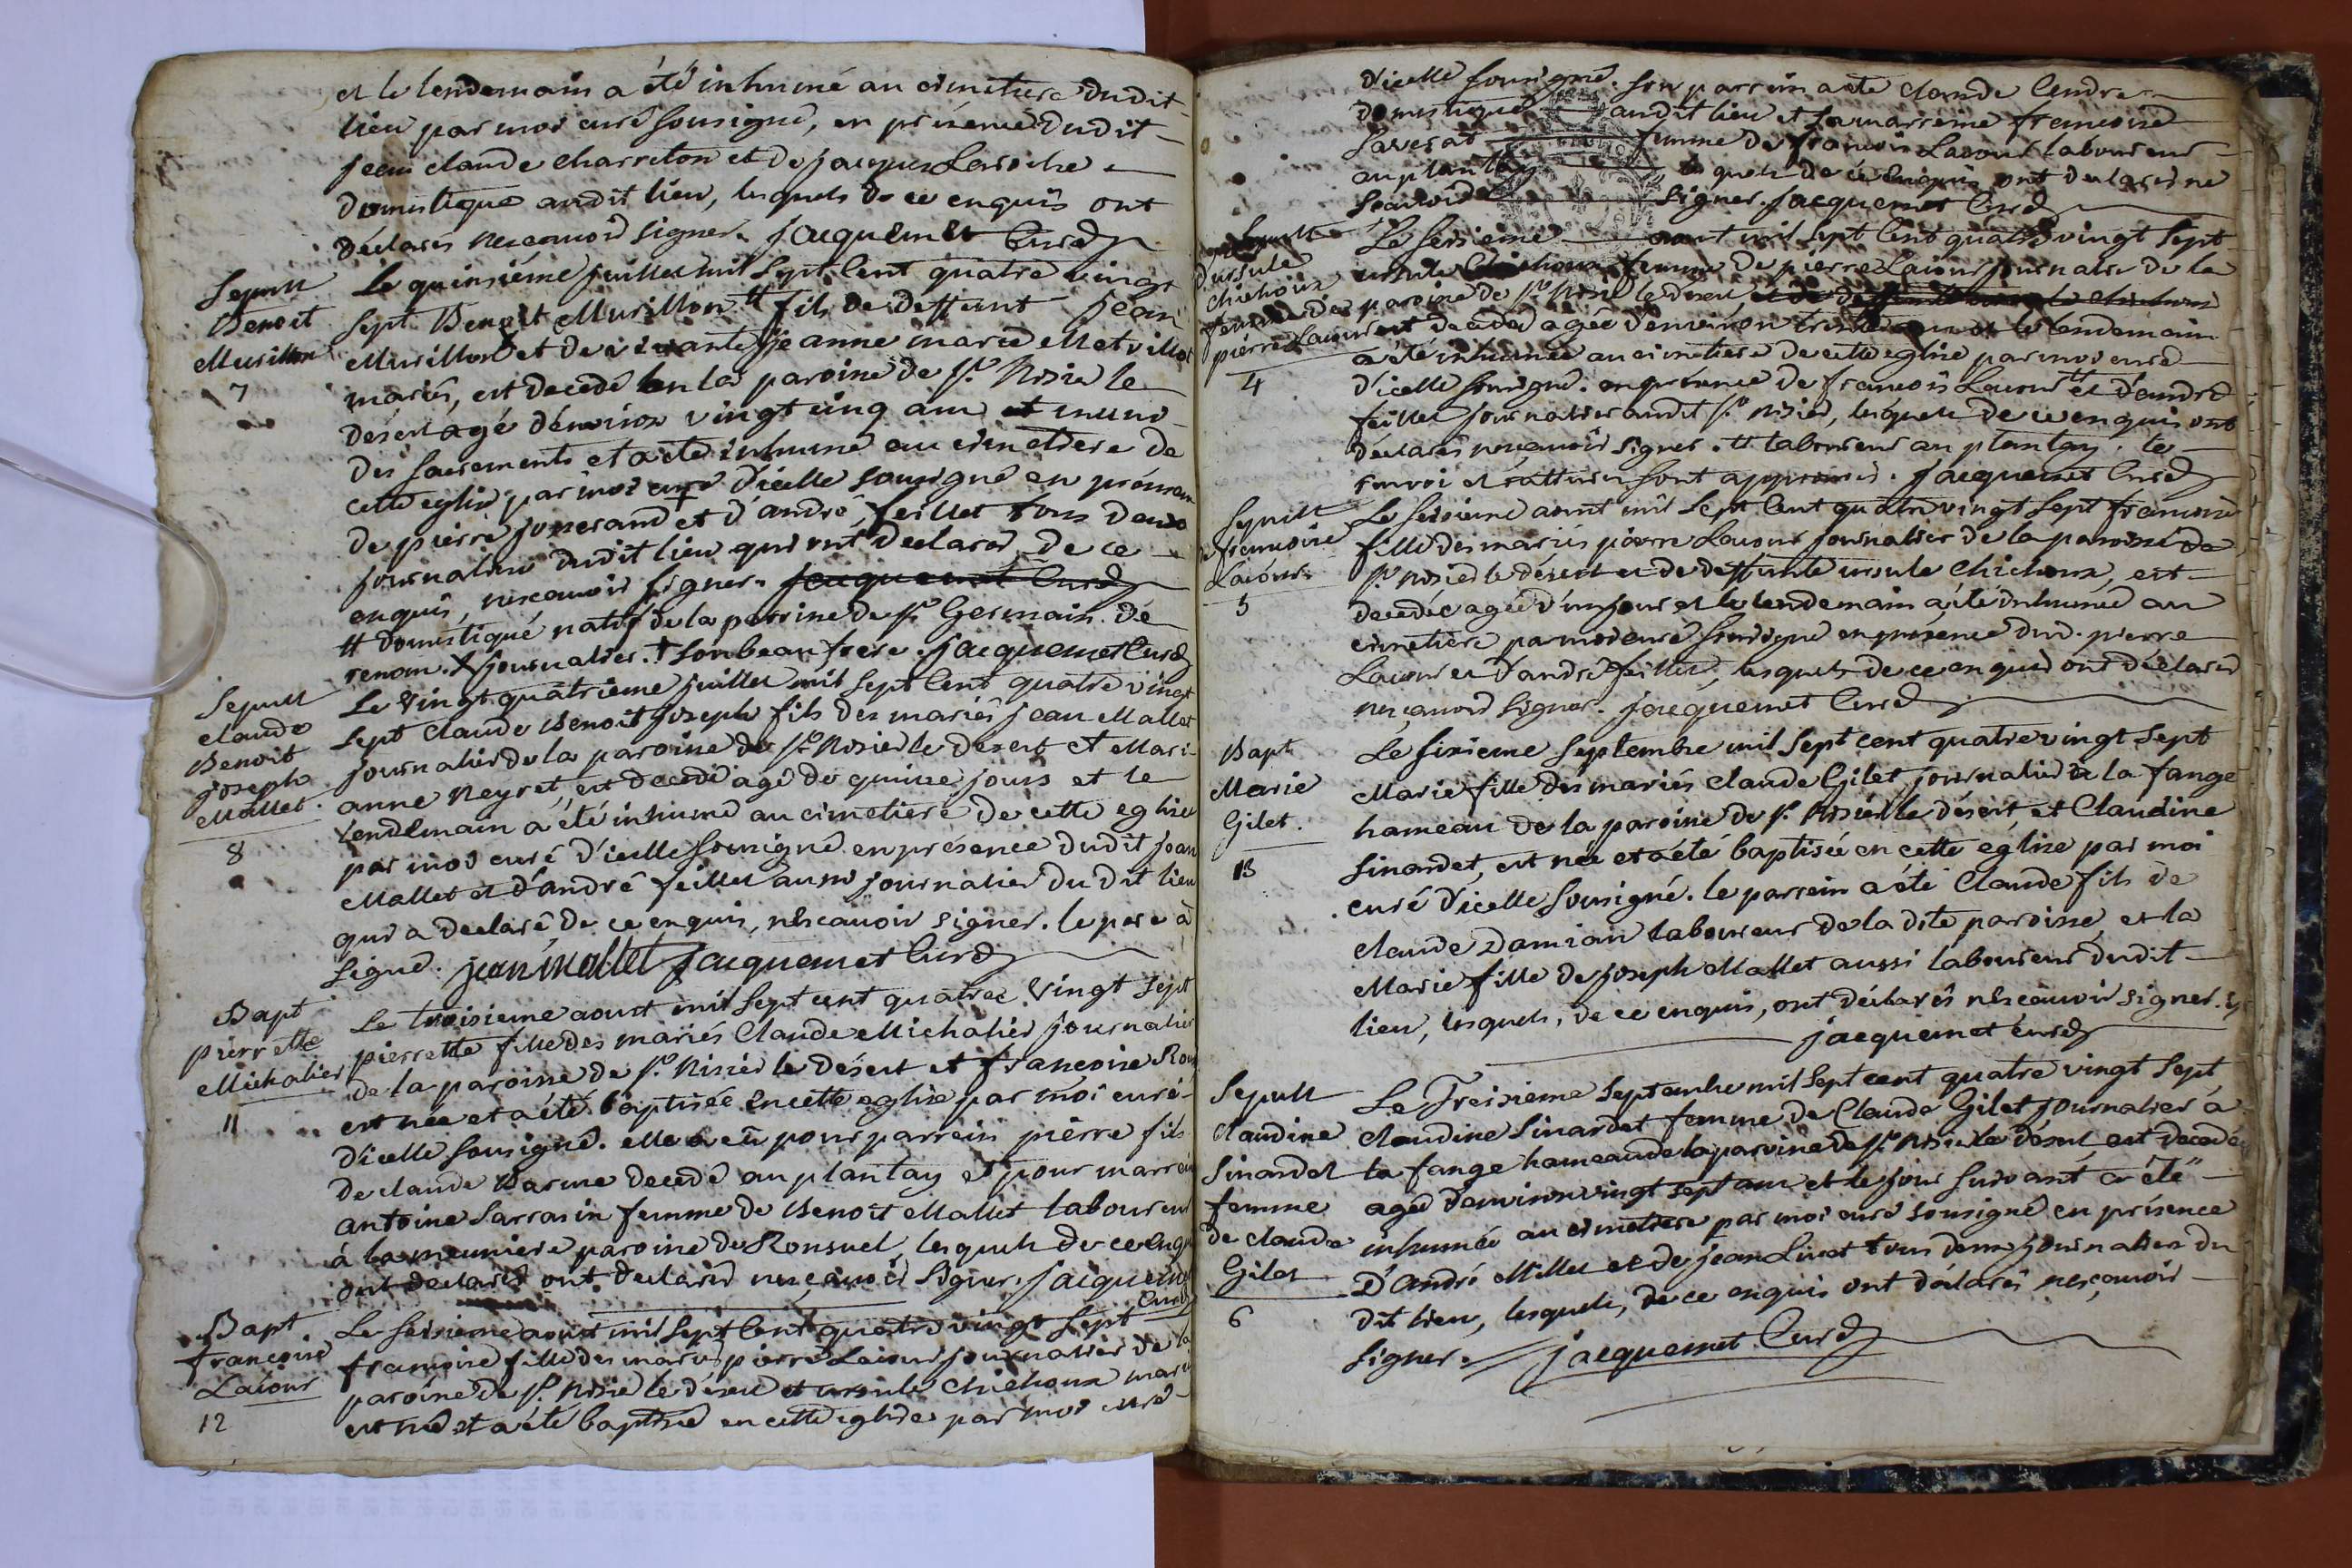 et le lendemain a été inhumé au cimetiere dudit
lieu par moi curé sousigné, en présence dudit
jean claude charreton et de jacques Laroche
domestique audit lieu, lesquels de ce enquis ont
déclarés nescavoir signer. jacquemet Curé
Sepult
Benoit
Murillon
7
Le quinsième juillet mil sept Cent quatre vingt
sept Benoit Murillon # fils de deffunt jean
Murillon et de vivante jeanne marie Metvillot
mariés, est decedé en la paroisse de St Nisier le
désert agé d'environ vingt cinq ans et muni
des sacrements et a été inhumé au cimetiere de
cette eglise par moi curé d'icelle sousigné en présence
de pierre jonerand et d'andré feillet tous deux
journaliers dudit lieu qui ont declaré, de ce
enquis, nescavoir signer. jacquemet Curé
# domestique natif de la paroisse de St Germain de
renom. X journalier. † son beau frere. jacquemet Curé
Sepult
claude
Benoit
joseph
Mallet.
8
Le vingt quatrieme juillet mil sept Cent quatre vingt
sept Claude Benoit joseph fils des mariés jean Mallet
journalier de la paroisse de St Nisier le désert et Mari-
anne Neyret, est decedé agé de quinze jours et le
lendemain a été inhumé au cimetiere de cette eglise
par moi curé d'icelle sousigné en présence dudit jean
Mallet et d'andré feillet aussi journalier du dit lieu
qui a declaré, de ce enquis, nescavoir signer. le pere à
signé. jean mallet jacquemet Curé
Bapt
pierrette
Michalier
11
Le troisieme aoust mil sept cent quatre vingt sept
pierrette fille des mariés Claude Michalier journalier
de la paroisse de St Nisier le désert et francoise
est née et a été baptisée en cette eglise par moi curé
d'icelle sousigné. elle a eu pour parrein pierre fils
de claude Barme decedé au plantay et pour marreine
antoine Sarrasin femme de Benoit Mallet laboureur
à la meuniere paroisse de Ronsuel, lesquels de ce enquis
ont declarés ont declarés nescavoir signer. jacquemet
Curé
Bapt
francoise
Lacour
12
Le seisieme aoust mil sept Cent quatre vingt sept
francoise fille des mariés pierre Lacour journalier de la
paroisse de St Nisier le désert et ursule Chichoux mariés
est née et a été baptisée en cette eglise par moi curé
d'icelle sousigné. son parrein a été claude Cendre
domestique audit lieu et sa marreine francoise
Saverat femme de francois Lacour laboureur
au plantay, lesquels de ce enquis ont declarés ne
scavoir signer. jacquemet Curé
Sepult
d'ursule
chichoux
femme de
pierre Lacour
4
Le seisieme aout mil sept Cent quatre vingt sept
ursule Chichoux femme de pierre Lacour journalier de la
paroisse de St Nisier le désert
est decedée agée d'environ trente ans et le lendemain
a été inhumée au cimetiere de cette eglise par moi curé
d'icelle sousigné. en présence de francois Lacour # et d'andré
feillet journalier audit St Nisier, lesquels de ce enquis ont
déclarés nescavoir signer. # laboureur au plantay. le
renvoi et ratture sont approuvés. jacquemet Curé
Sepult
de francoise
Lacour
5
Le seisieme aout mil sept Cent quatre vingt sept francoise
fille des mariés pierre Lacour journalier de la paroisse de
St Nisier le désert et de deffunte ursule Chichoux, est
decedée agée d'un jour et le lendemain a été inhumée au
cimetière par moi curé sousigné en présence dud. pierre
Lacour et d'andré feillet, lesquels de ce enquis ont déclarés
nescavoir signer. jacquemet Curé
Bapt
Marie
Gilet.
13
Le sixieme septembre mil sept cent quatre vingt sept
Marie fille des mariés claude Gilet journalier à la fange
hameau de la paroisse de St Nisier le désert, et Claudine
Sinardet, est née et a été baptisée en cette eglise par moi
curé d'icelle sousigné. le parrein a été Claude fils de
claude Damian laboureur de la dite paroisse, et la
Marie fille de joseph Mallet aussi laboureur dudit
lieu, lesquels, de ce enquis, ont déclarés nescavoir signer.
jacquemet curé
Sepult
claudine
Sinardet
femme
de claude
Gilet
6
Le Treisieme septembre mil sept cent quatre vingt sept
claudine Sinardet femme de Claude Gilet journalier à
la fange hameau de la paroisse de St Nisier le désert, est decedée
agée d'environ vingt sept ans et le jour suivant a été
inhumée au cimetiere par moi curé sousigné en présence
D'andré Millet et de jean Livet tous deux journaliers du
dit lieu, lesquels, de ce enquis ont déclarés nescavoir
signer. jacquemet Curé